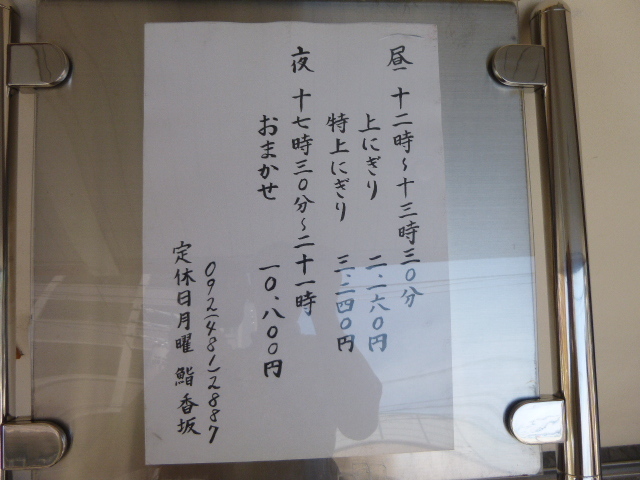 昼 十二時～十三時三〇分
上にぎり 二.一六〇円
特上にぎり 三.二四〇円
夜 十七時三〇分～二十一時
おまかせ 一〇.八〇〇円
092(481)2887
定休日月曜 鮨 香坂